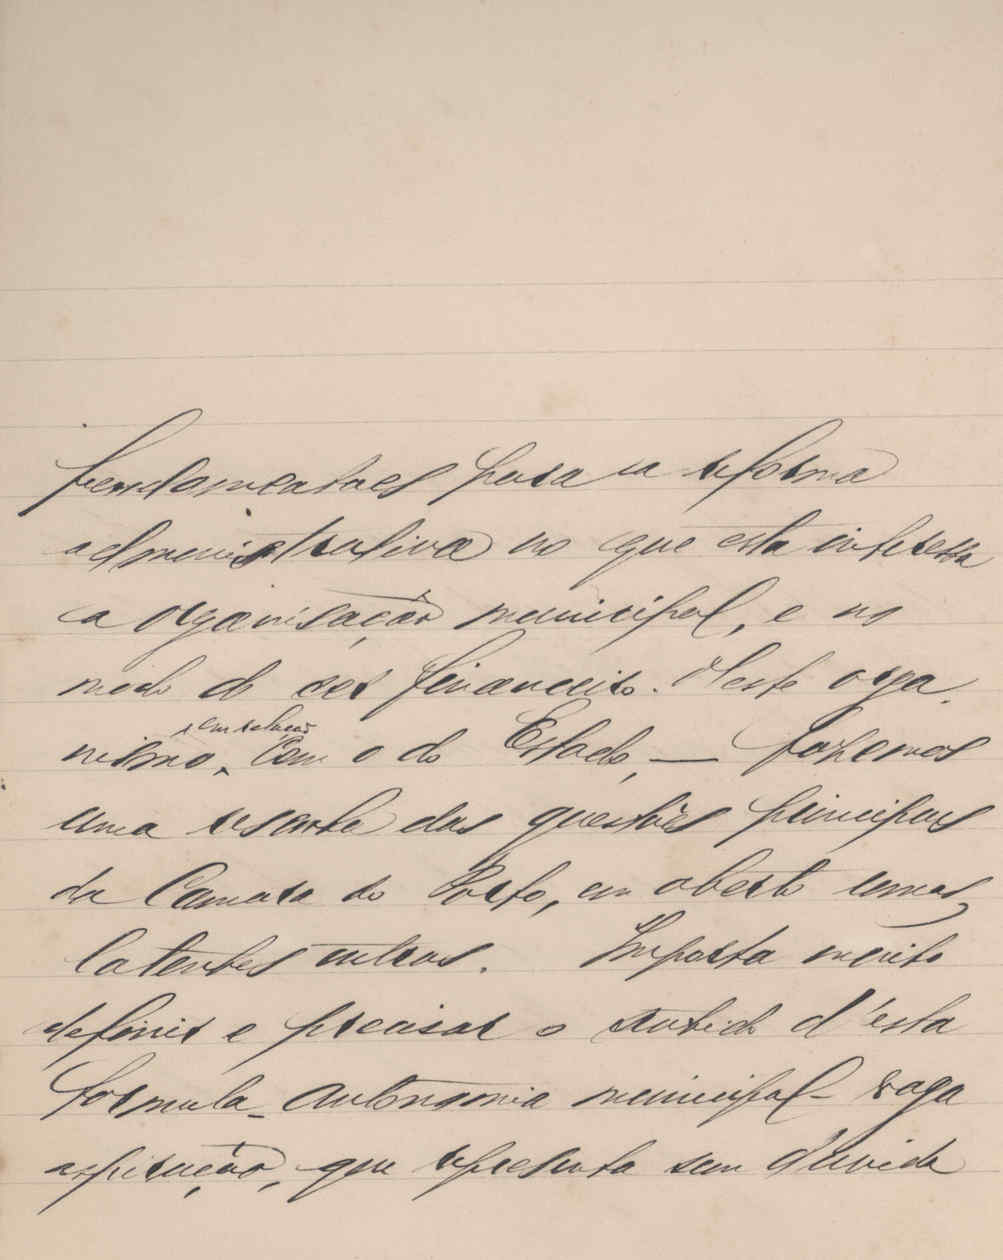 fundamentaes para a reforma
administrativa no que esta interessa
a organisação municipal, e no
modo de ser financeiro. Neste orga
em relação
nismo, com o do Estado, — fazemos
uma resenha das questões principaes
da Camara do Porto, em aberto umas,
latentes outras. Importa muito
definir e precisar o sentido d'esta
formula - autonomia municipal - vaga
aspiração, que representa sem duvida